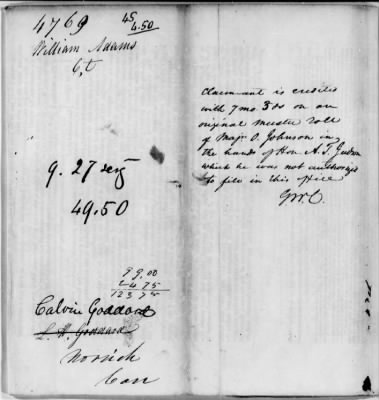 4769
45
4.50
William Adams
Ct
9.27 serj
49.50
99.00
24.75
123.75
Calvin Goddard
L. H. Goddard
Norwich
Con
claimant is credited
with 7 mo 3 ds on an
original muster roll
of Majr. O. Johnson in
the hands of Hon A. T. Judson
which he was not authorized
to file in this office